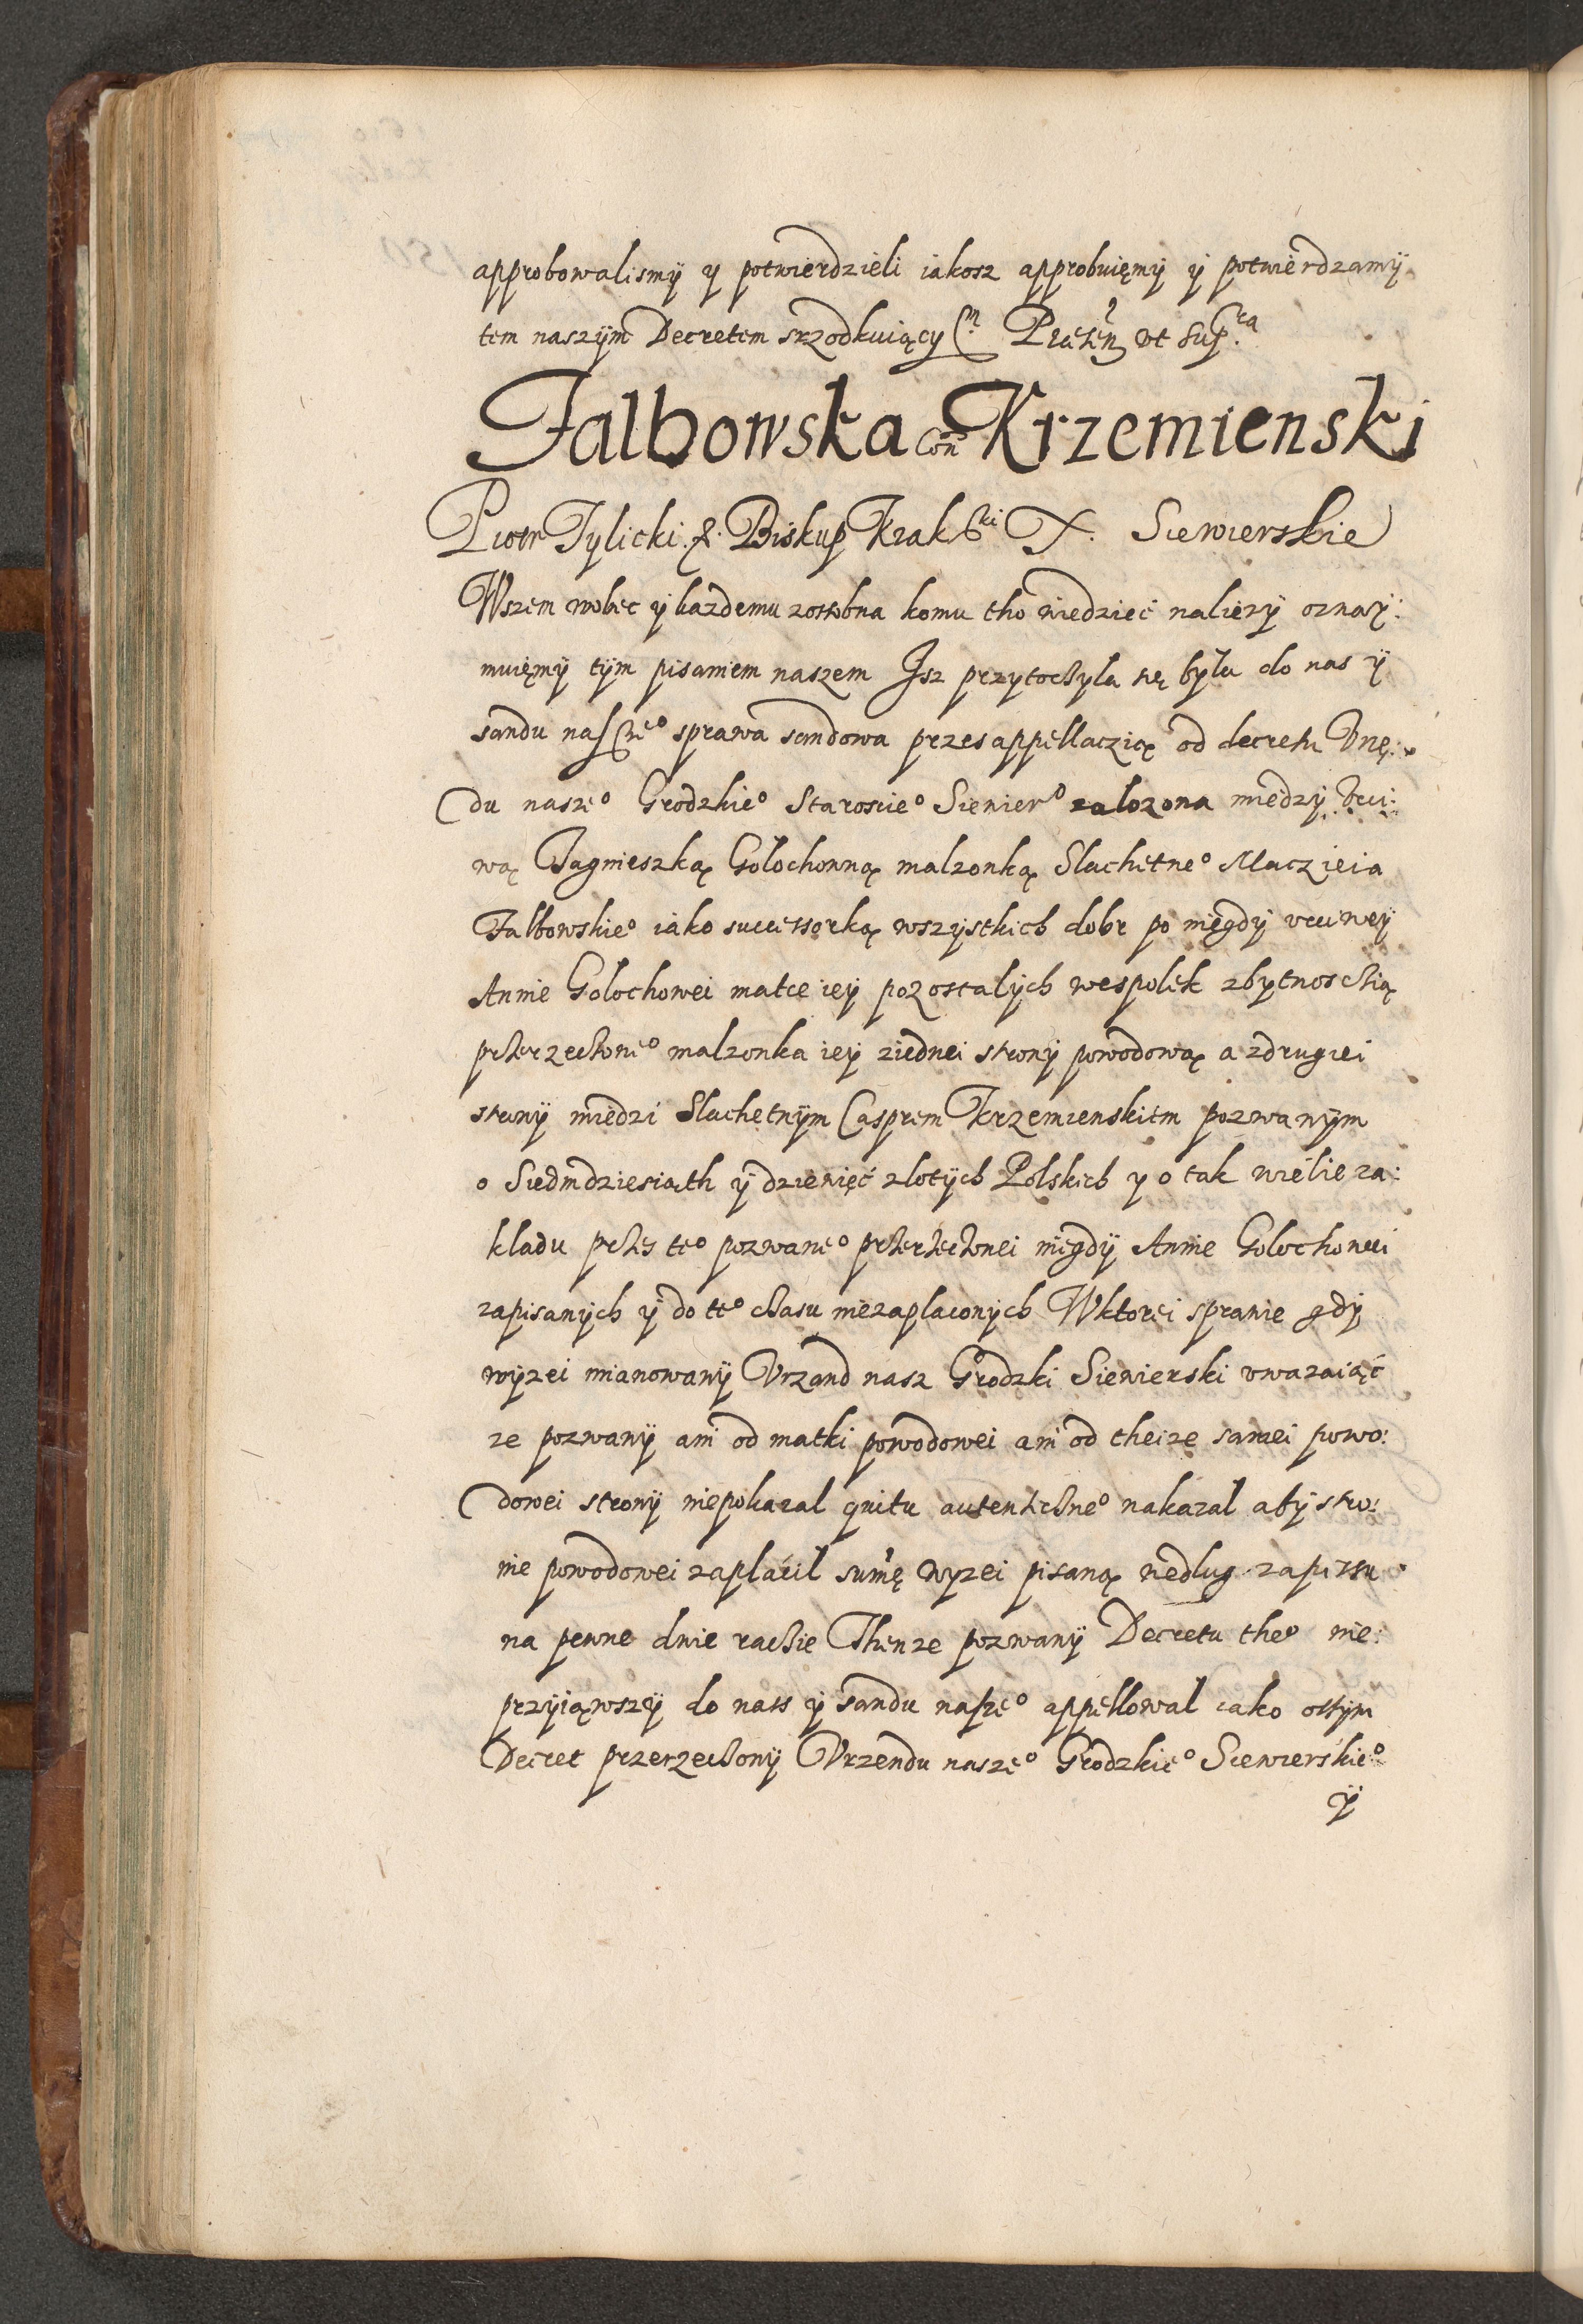 approbowalismÿ y potwierdzieli iakosz approbuięmÿ ÿ potwierdzamÿ
tem naszÿm Decretem srzodkuiący m Præsen ut supra
Falbowska con Krzemienski
Piotr Tylicki &. Biskup Krakski X. Siewierskie
Wszem wobec ÿ kazdemu zossobna komu tho wiedzieć nalieżÿ oznaÿ:
muięmÿ tÿm pisaniem naszem Jsz przytochyla się była do nas ÿ
sandu nasze° sprawa sandowa przes appellaczią od decretu Vrzę:
du nasze° Grodzkie° Staroscie° Siewier° zalozona miedzÿ Vcći:
wą Jagnieszką Golochowną malzonką Slachetne° Maczieia
Falbowskie° iako successorką wszÿstkich dobr po niegdÿ vcciweÿ
Annie Golochowei matce ieÿ pozostalÿch wespolek zbytnoschią
przerzechone° malzonka ieÿ ziednei stronÿ powodową a zdrugiei
stronÿ miedzi Slachetnÿm Casprem Krzemienskiem pozwanÿm
o Siedmdziesiąth ÿ dziewięć zlotÿch Polskich y o tak wielie za:
kladu przes te° pozwane° przerzechonei niegdÿ Annie Golochowei
zapisanÿch ÿ do te° chasu niezaplaconÿch Wktorei sprawie gdÿ
wÿzei mianowanÿ Vrzand nasz Grodzki Siewierski vwazaiąć
ze pozwanÿ ani od matki powodowei ani od theize samei powo:
dowei stronÿ niepokazal quitu autentichne° nakazal abÿ stro:
nie powodowei zaplácil sumę wyzei pisaną wedlug zapissu
na pewne dnie rachie Thenze pozwanÿ Decretu the° nie:
przÿiąwszÿ do nass ÿ sandu nasze° appellowal iako otÿm
Decret przerzechonÿ Vrzendu nasze° Grodzkie° Siewierskie°
ÿ